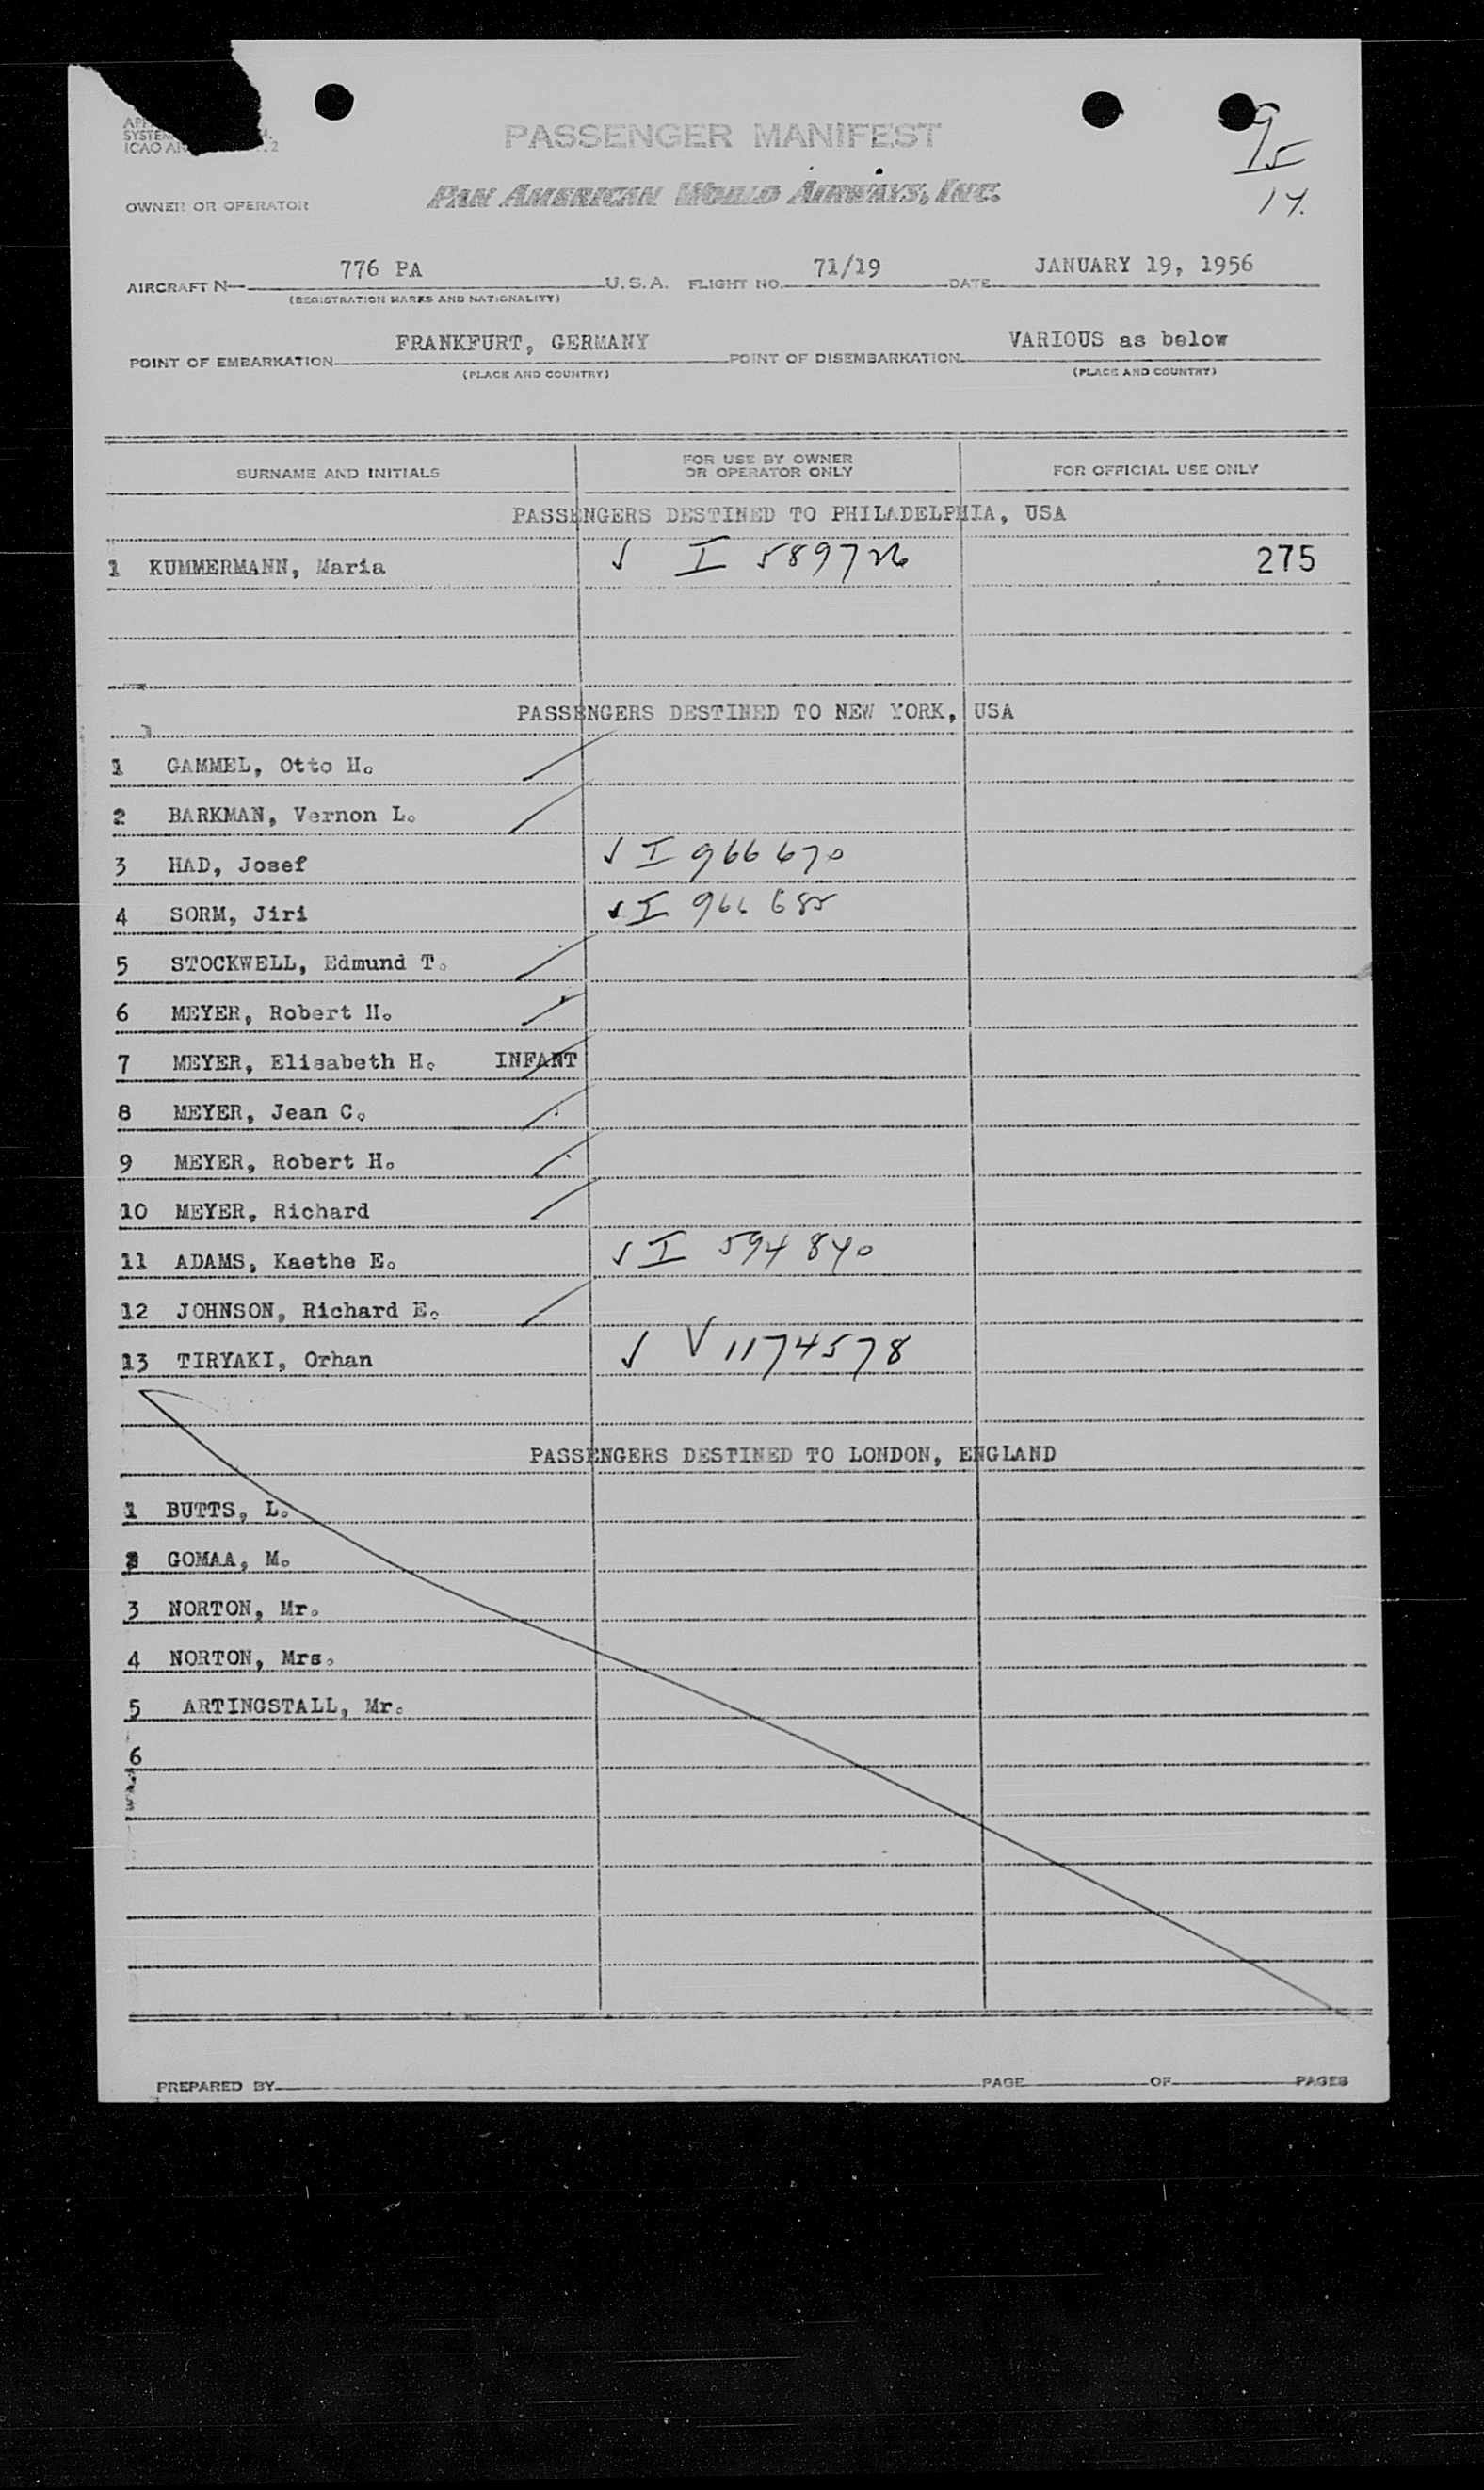 PASSENGER MANIFEST
9
5
14.
OWNER OR OPERATOR PAN AMERICAN WORLD AIRWAYS, INC.
AIRCRAFT N 776 PA U.S.A. FLIGHT NO. 71/19 DATE JANUARY 19, 1956
(REGISTRATION MARKS AND NATIONALITY)
POINT OF EMBARKATION FRANKFURT, GERMANY POINT OF DISEMBARKATION VARIOUS as below
(PLACE AND COUNTRY) (PLACE AND COUNTRY)
SURNAME AND INITIALS FOR USE BY OWNER OR OPERATOR ONLY FOR OFFICIAL USE ONLY
PASSENGERS DESTINED TO PHILADELPHIA, USA
1 KUMMERMANN, Maria ✓ I 589726 275
PASSENGERS DESTINED TO NEW YORK, USA
1 GAMMEL, Otto H.
2 BARKMAN, Vernon L.
3 HAD, Josef ✓ I 966670
4 SORM, Jiri ✓ I 966685
5 STOCKWELL, Edmund T.
6 MEYER, Robert H.
7 MEYER, Elisabeth H. INFANT
8 MEYER, Jean C.
9 MEYER, Robert H.
10 MEYER, Richard
11 ADAMS, Kaethe E. ✓ I 594840
12 JOHNSON, Richard E.
13 TIRYAKI, Orhan ✓ V 1174578
PASSENGERS DESTINED TO LONDON, ENGLAND
1 BUTTS, L.
2 GOMAA, M.
3 NORTON, Mr.
4 NORTON, Mrs.
5 ARTINGSTALL, Mr.
6
PREPARED BY PAGE OF PAGES